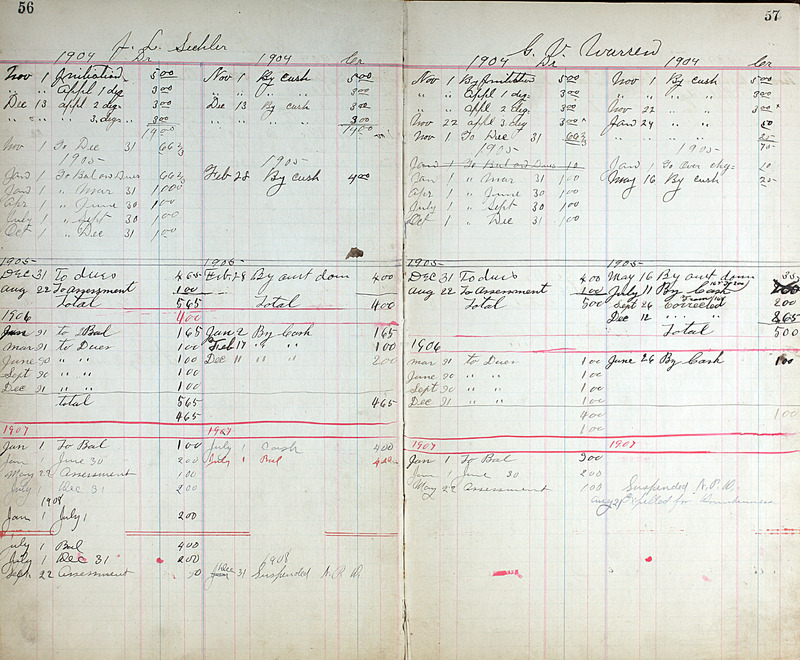 56
J. L. Sechler
1904 Dr 1904 Cr
Nov 1 Initiation 5 00 Nov 1 By cash 5 00
" 1 Appl 1 deg 3 00 " " " " 3 00
Dec 13 appl 2 deg. 3 00 Dec 13 By cash 3 00
" " " 3 deg. 3 00 " " " " 3 00
14 00 14 00
Nov 1 To Dec 31 66 2/3
1905 1905
Jan 1 To Bal on Dues 66 2/3 Feb 28 By cash 4 00
Jan 1 " Mar 31 1 00
Apr 1 " June 30 1 00
July 1 " Sept 30 1 00
Oct 1 " Dec 31 1 00
1905 1905
DEC 31 To dues 4 65 Feb 28 By amt down 4 00
Aug 22 To Assessment 1 00
Total 5 65 Total 4 00
1906 4 00
Jan 31 to Bal 1 65 Jan 2 By Cash 1 65
Mar 31 to Dues 1 00 Feb 17 " " 1 00
June 30 " " 1 00 Dec 11 " " 2 00
Sept 30 " " 1 00
Dec 31 " " 1 00
Total 5 65 4 65
4 65
1907 1907
Jan 1 To Bal 1 00 July 1 Cash 4 00
Jan 1 June 30 2 00 July 1 Bal
May 22 Assessment 1 00
July 1 Dec 31 2 00
1908
Jan 1 July 1 2 00
July 1 Bal 4 00
July 1 Dec 31 2 00 1908
Sept 22 Assessment 50 Dec 31 Suspended N. P. D.
57
G. V. Warren
1904 Dr 1904 Cr
Nov 1 By Initiation 5 00 Nov 1 By cash 5 00
" " appl 1 deg 3 00 " " " " 3 00
" " appl 2 deg. 3 00 Nov 22 " " 3 00
Nov 22 appl 3 deg 3 00 Jan 24 " " 50
Nov 1 To Dec 31 66 2/3 25
1905 1905 75
Jan 1 To Bal on Dues 10 Jan 1 To Over chg 10
Jan 1 " Mar 31 1 00 May 16 By cash 25
Apr 1 " June 30 1 00
July 1 " Sept 30 1 00
Oct 1 " Dec 31 1 00
1905 1905
DEC 31 To dues 4 00 May 16 By amt down 35
Aug 22 To Assessment 1 00 July 11 By Cash
Total 5 00 Sept 26 Corrected 2 00
Dec 12 " " " 2 65
Total 5 00
1906
Mar 31 to Dues 1 00 June 26 By Cash 1 00
June 30 " " 1 00
Sept 30 " " 1 00
Dec 31 " " 1 00
4 00 1 00
1 00
1907 1907
Jan 1 To Bal 3 00
Jan 1 June 30 2 00
May 22 Assessment 1 00 Suspended N. P. D.
Aug 21 Expelled for Drunkenness